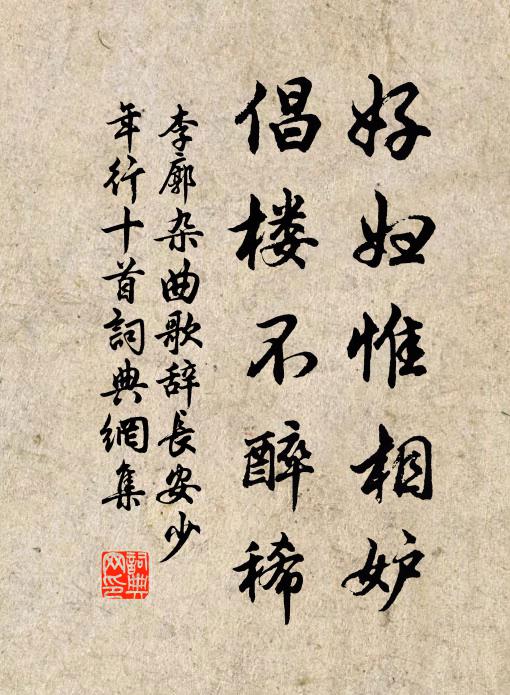 好妇惟相妒
倡楼不醉稀
李廓杂曲歌辞长安少
年行十首詞典網集
詞典
网印